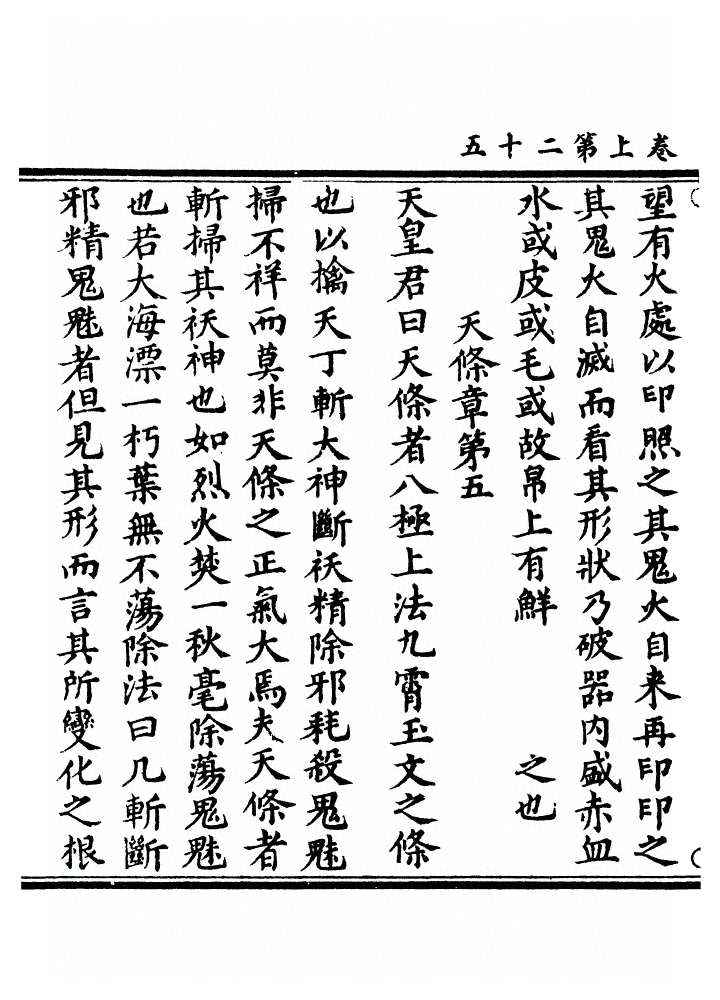 卷上第二十五
望有火處以印照之其鬼火自来再印印之
其鬼火自滅而看其形狀乃破器内盛赤血
水或皮或毛或故帛上有鮮　　　之也
天條章第五
天皇君曰天條者八極上法九霄玉文之條
也以擒天丁斬大神斷祅精除邪耗殺鬼魅
掃不祥而莫非天條之正氣大焉夫天條者
斬掃其祅神也如烈火焚一秋毫除蕩鬼魅
也若大海漂一朽葉無不蕩除法曰凡斬斷
邪精鬼魅者但見其形而言其所變化之根